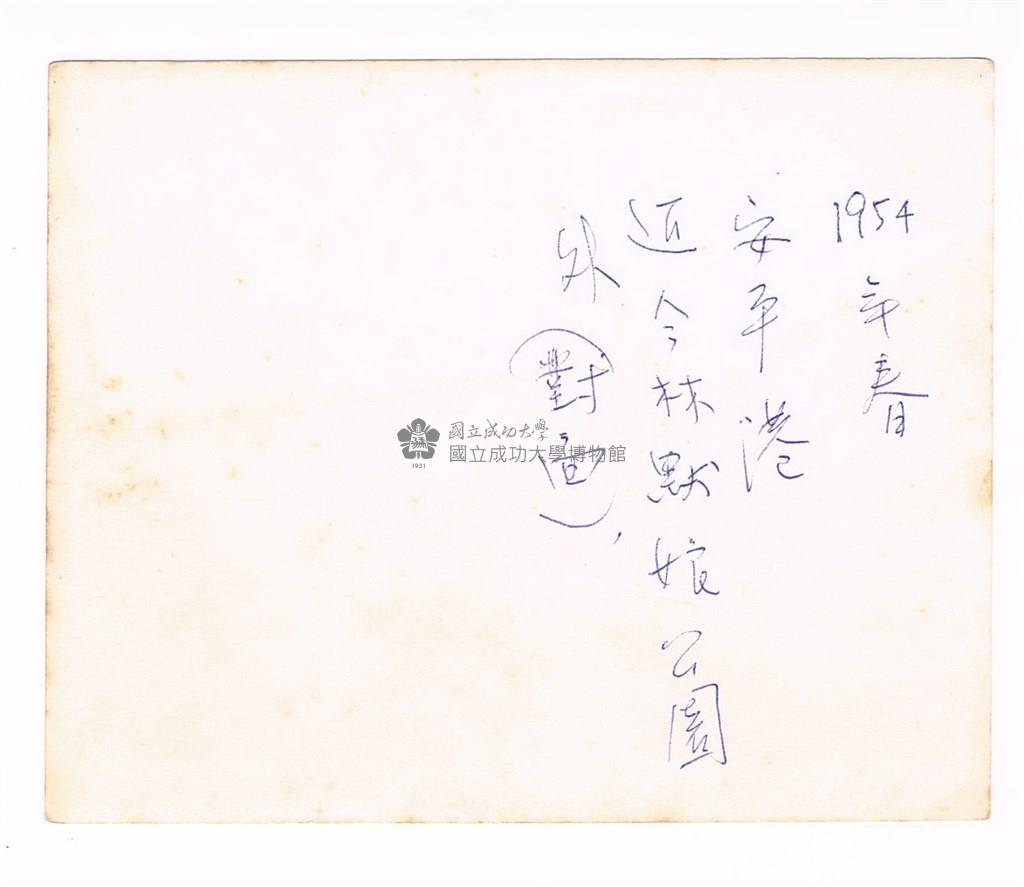 1954年春
安平港
近今林默娘公園
外(對面),
國立成功大學
國立成功大學博物館
1931